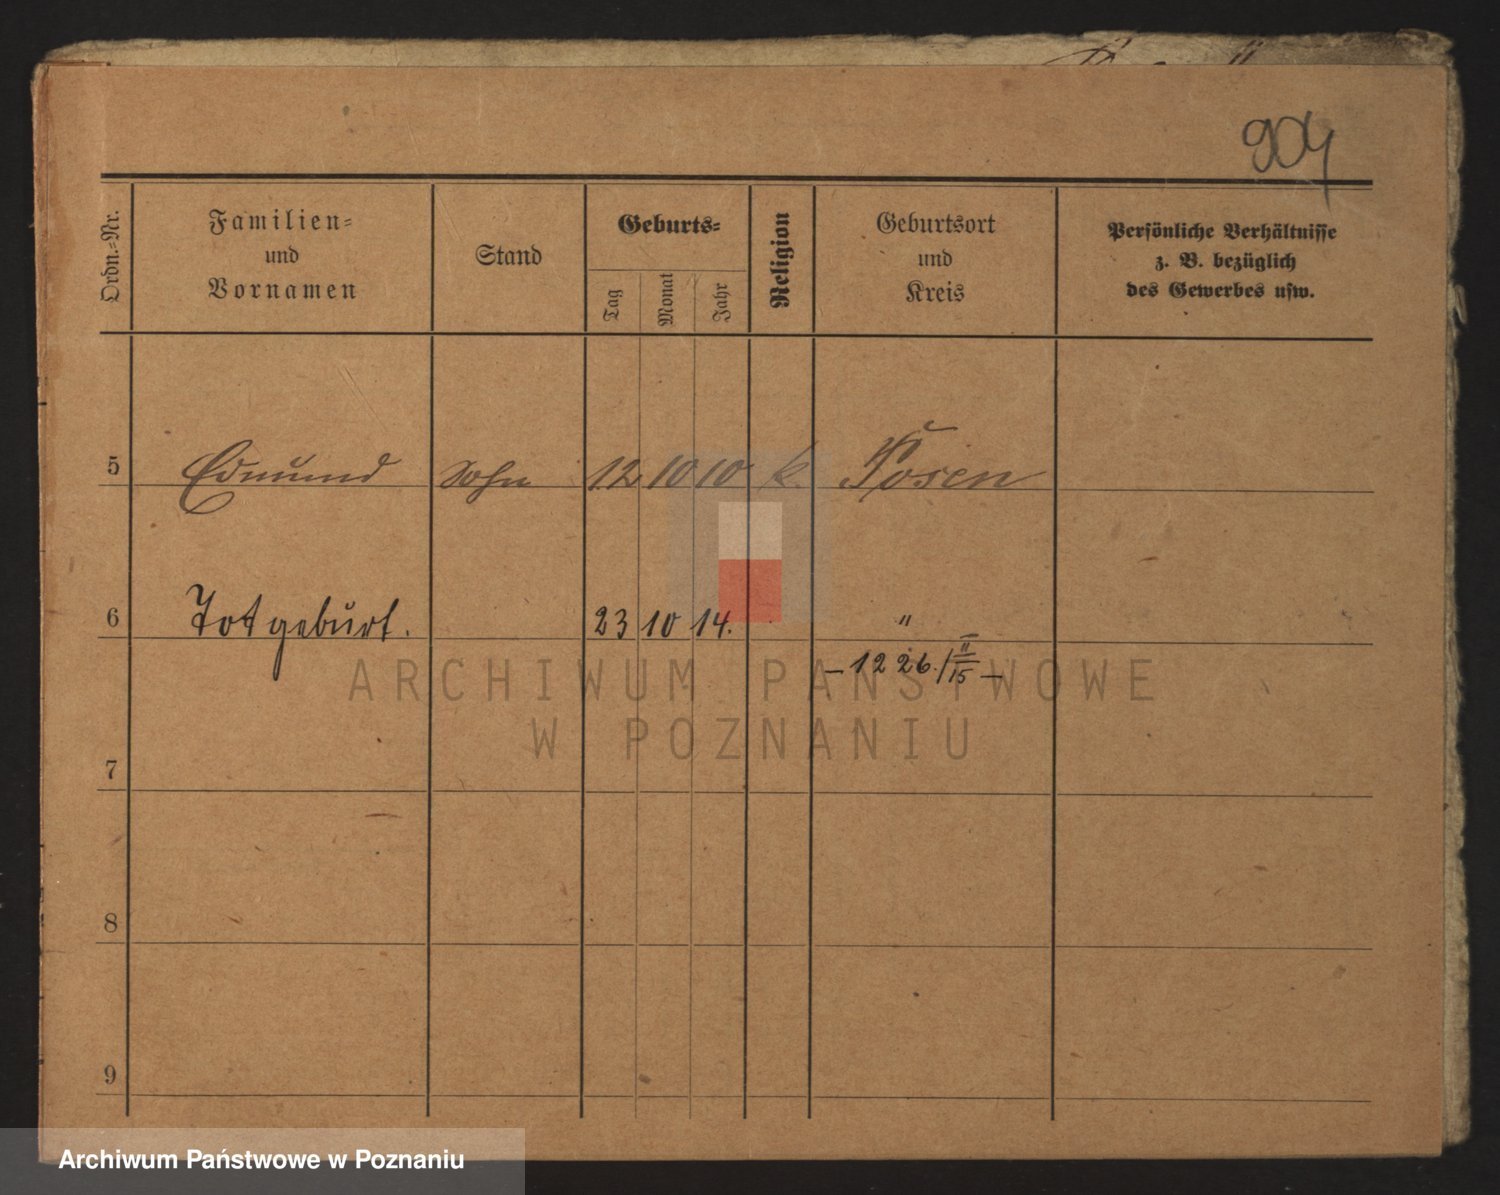 904
Ordn.=Nr.
Familien=
und
Vornamen
Stand
Geburts=
Tag
Monat
Jahr
Religion
Geburtsort
und
Kreis
Persönliche Verhältnisse
z. B. bezüglich
des Gewerbes usw.
5 Edmund Sohn 12 10 10 k. Posen
6 Totgeburt. 23 10 14. "
– 1226./II/15 –
7
8
9
ARCHIWUM PAŃSTWOWE
W POZNANIU
Archiwum Państwowe w Poznaniu